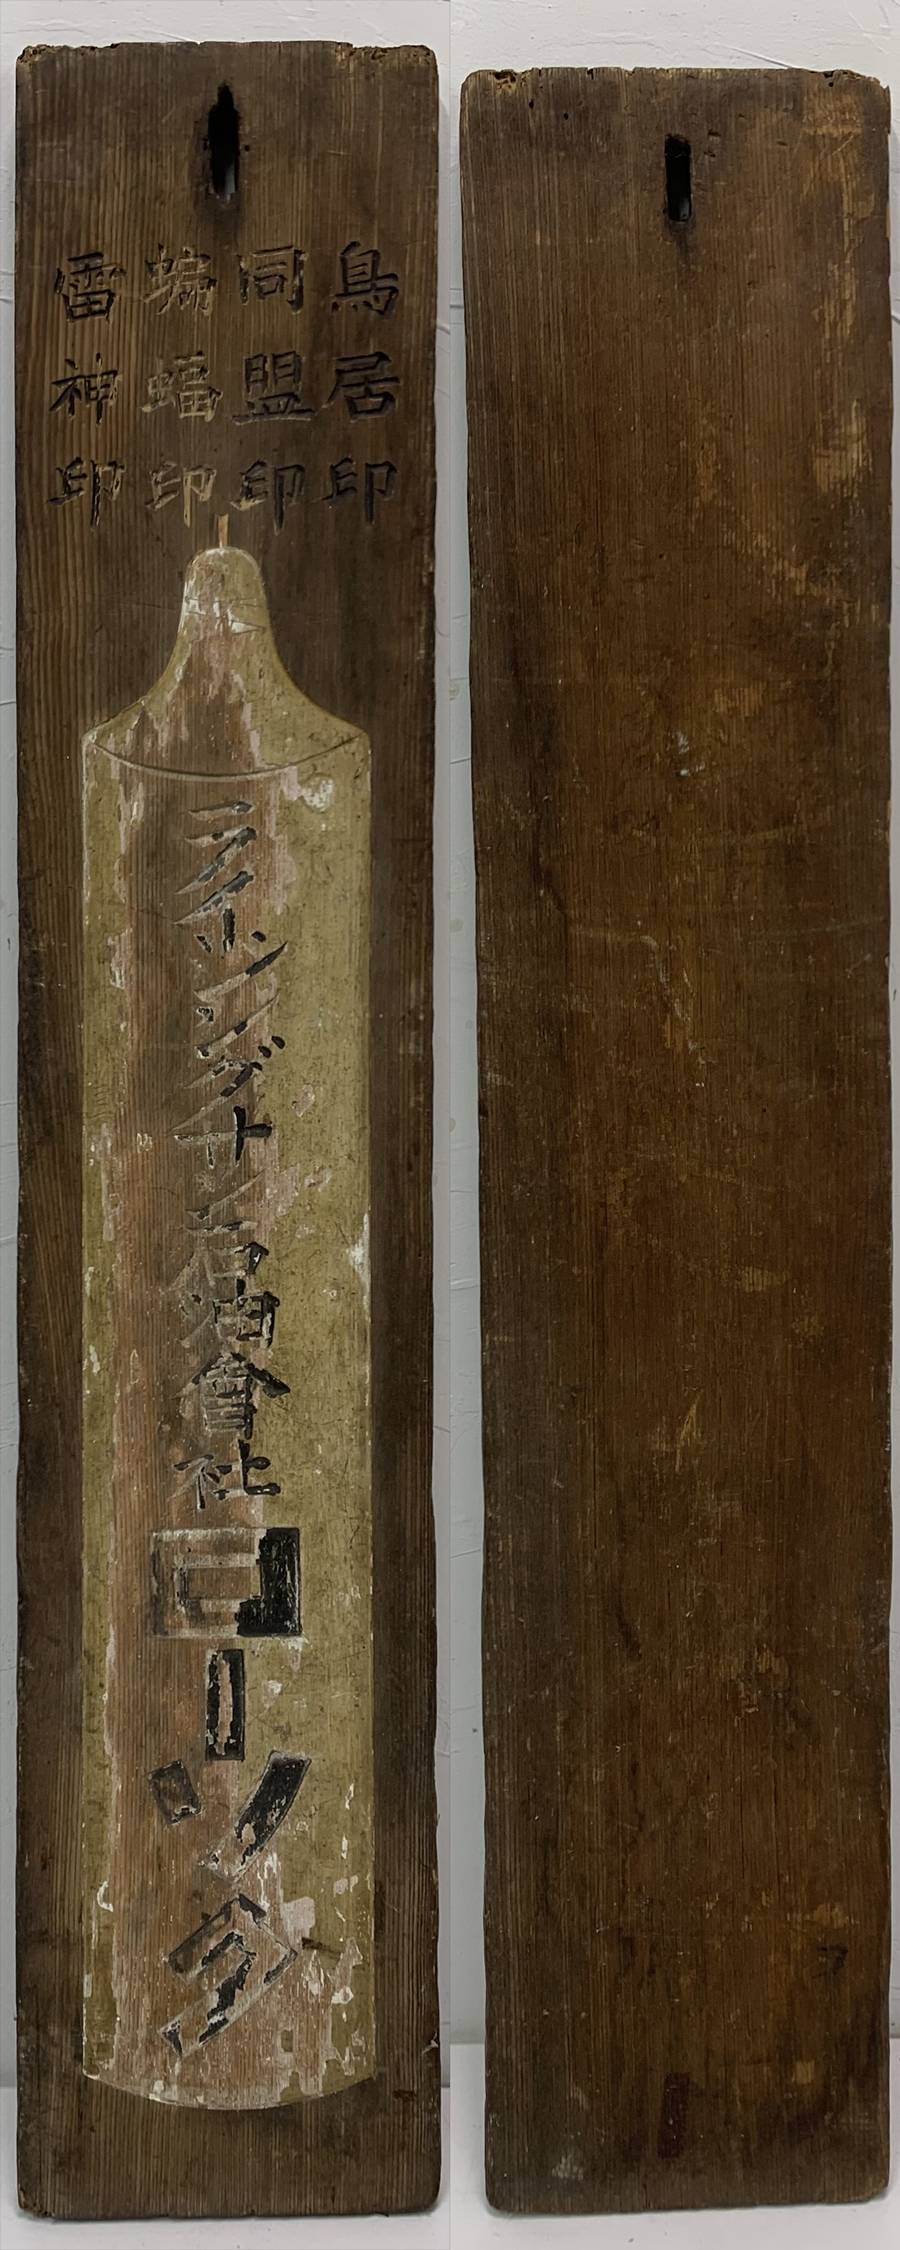 鳥居印
同盟印
蝙蝠印
雷神印
ライジングサン石油會社
ローソク